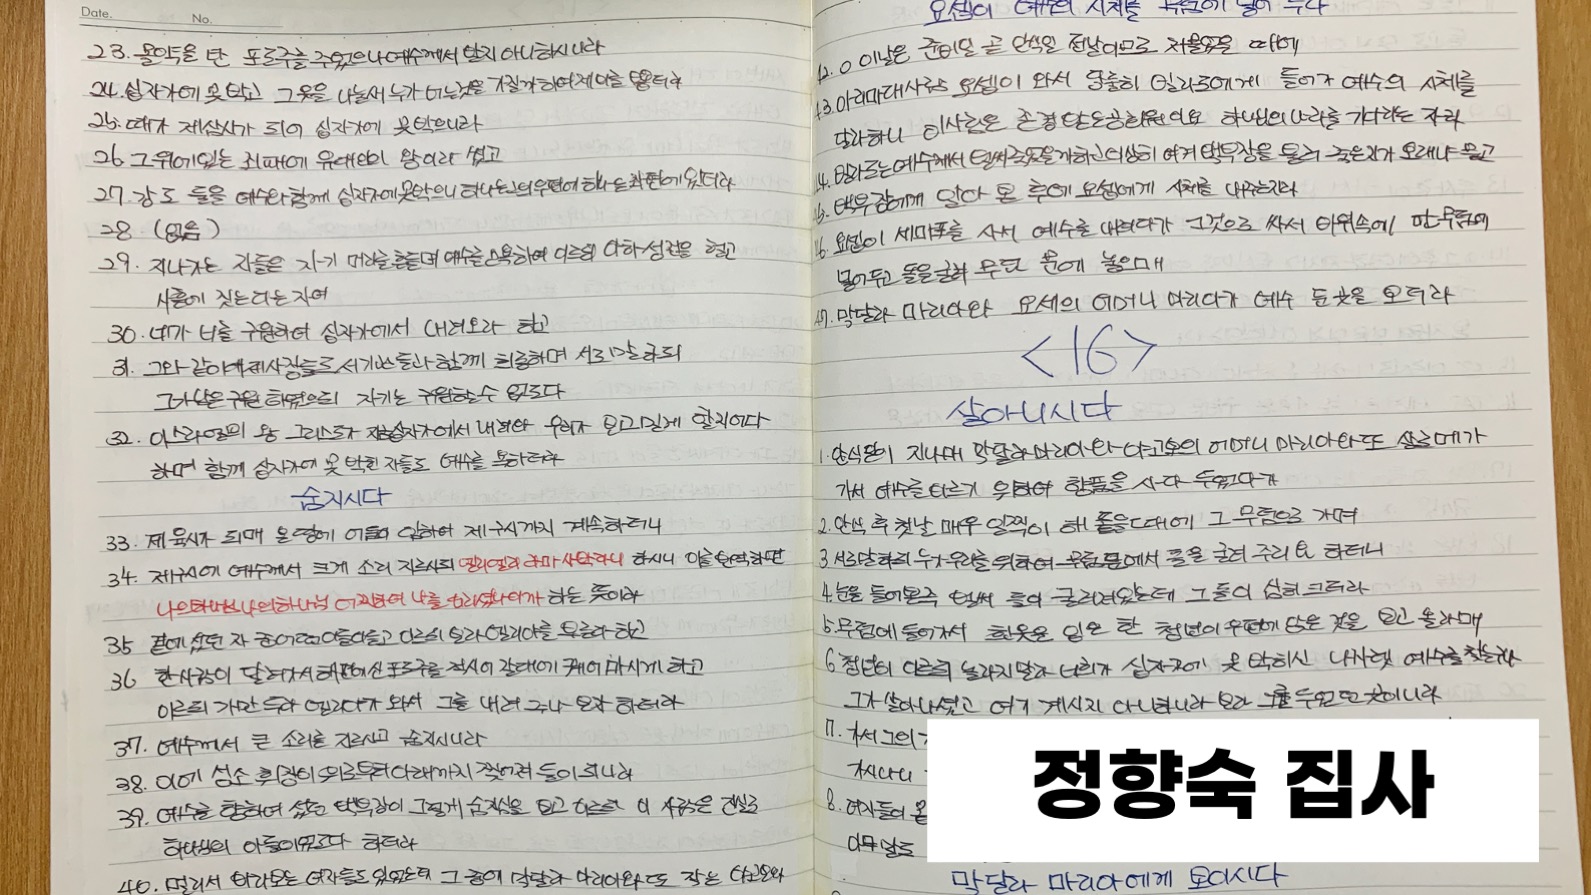 Date.
No.
23. 몰약을 탄 포도주를 주었으나 예수께서 받지 아니하시니라
24. 십자가에 못 박고 그 옷을 나눌새 누가 어느것을 가질까 하여 제비를 뽑더라
25. 때가 제삼시가 되어 십자가에 못박으니라
26 그 위에 있는 죄패에 유대인의 왕이라 썼고
27. 강도 둘을 예수와 함께 십자가에 못 박으니 하나는 그의 우편에 하나는 좌편에 있더라
28 (없음)
29. 지나가는 자들은 자기 머리를 흔들며 예수를 모욕하여 이르되 아하 성전을 헐고
사흘에 짓는다는 자여
30. 네가 너를 구원하여 십자가에서 내려오라 하고
31. 그와 같이 대제사장들도 서기관들과 함께 희롱하며 서로 말하되
그가 남은 구원하였으되 자기는 구원할 수 없도다
32. 이스라엘의 왕 그리스도가 지금 십자가에서 내려와 우리가 보고 믿게 할지어다
하며 함께 십자가에 못 박힌 자들도 예수를 욕하더라
숨지시다
33. 제육시가 되매 온 땅에 어둠이 임하여 제구시까지 계속하더니
34. 제구시에 예수께서 크게 소리 지르시되 엘리 엘리 라마 사박다니 하시니 이를 번역하면
나의 하나님 나의 하나님 어찌하여 나를 버리셨나이까 하는 뜻이라
35 곁에 섰던 자 중 어떤 이들이 듣고 이르되 보라 엘리야를 부른다 하고
36 한 사람이 달려가서 해면에 신 포도주를 적시어 갈대에 꿰어 마시게 하고
이르되 가만 두라 엘리야가 와서 그를 내려 주나 보자 하더라
37. 예수께서 큰 소리를 지르시고 숨지시니라
38. 이에 성소 휘장이 위로부터 아래까지 찢어져 둘이 되니라
39. 예수를 향하여 섰던 백부장이 그렇게 숨지심을 보고 이르되 이 사람은 진실로
하나님의 아들이었도다 하더라
40. 멀리서 바라보는 여자들도 있었는데 그 중에 막달라 마리아와 또 작은 야고보와
요셉이 예수의 시체를 무덤에 넣어 두다
42. 이 날은 준비일 곧 안식일 전날이므로 저물었을 때에
43. 아리마대 사람 요셉이 와서 당돌히 빌라도에게 들어가 예수의 시체를
달라하니 이 사람은 존경 받는 공회원이요 하나님의 나라를 기다리는 자라
44. 빌라도는 예수께서 벌써 죽었을까 하고 이상히 여겨 백부장을 불러 죽은지가 오래냐 묻고
45. 백부장에게 알아 본 후에 요셉에게 시체를 내주는지라
46. 요셉이 세마포를 사서 예수를 내려다가 그것으로 싸서 바위속에 판 무덤에
넣어두고 돌을 굴려 무덤 문에 놓으매
47. 막달라 마리아와 요세의 어머니 마리아가 예수 둔 곳을 보더라
<16>
살아나시다
1. 안식일이 지나매 막달라 마리아와 야고보의 어머니 마리아와 또 살로메가
가서 예수를 바르기 위하여 향품을 사다 두었다가
2. 안식 후 첫날 매우 일찍이 해 돋을 때에 그 무덤으로 가며
3. 서로 말하되 누가 우리를 위하여 무덤 문에서 돌을 굴려 주리요 하더니
4. 눈을 들어본즉 벌써 돌이 굴려져 있는데 그 돌이 심히 크더라
5. 무덤에 들어가서 흰옷을 입은 한 청년이 우편에 앉은 것을 보고 놀라매
6 청년이 이르되 놀라지 말라 너희가 십자가에 못 박히신 나사렛 예수를 찾는구나
그가 살아나셨고 여기 계시지 아니하니라 보라 그를 두었던 곳이니라
7. 가서 그의
가시나니
8. 여자들이 몹
아무 말도
막달라 마리아에게 보이시다
정향숙 집사